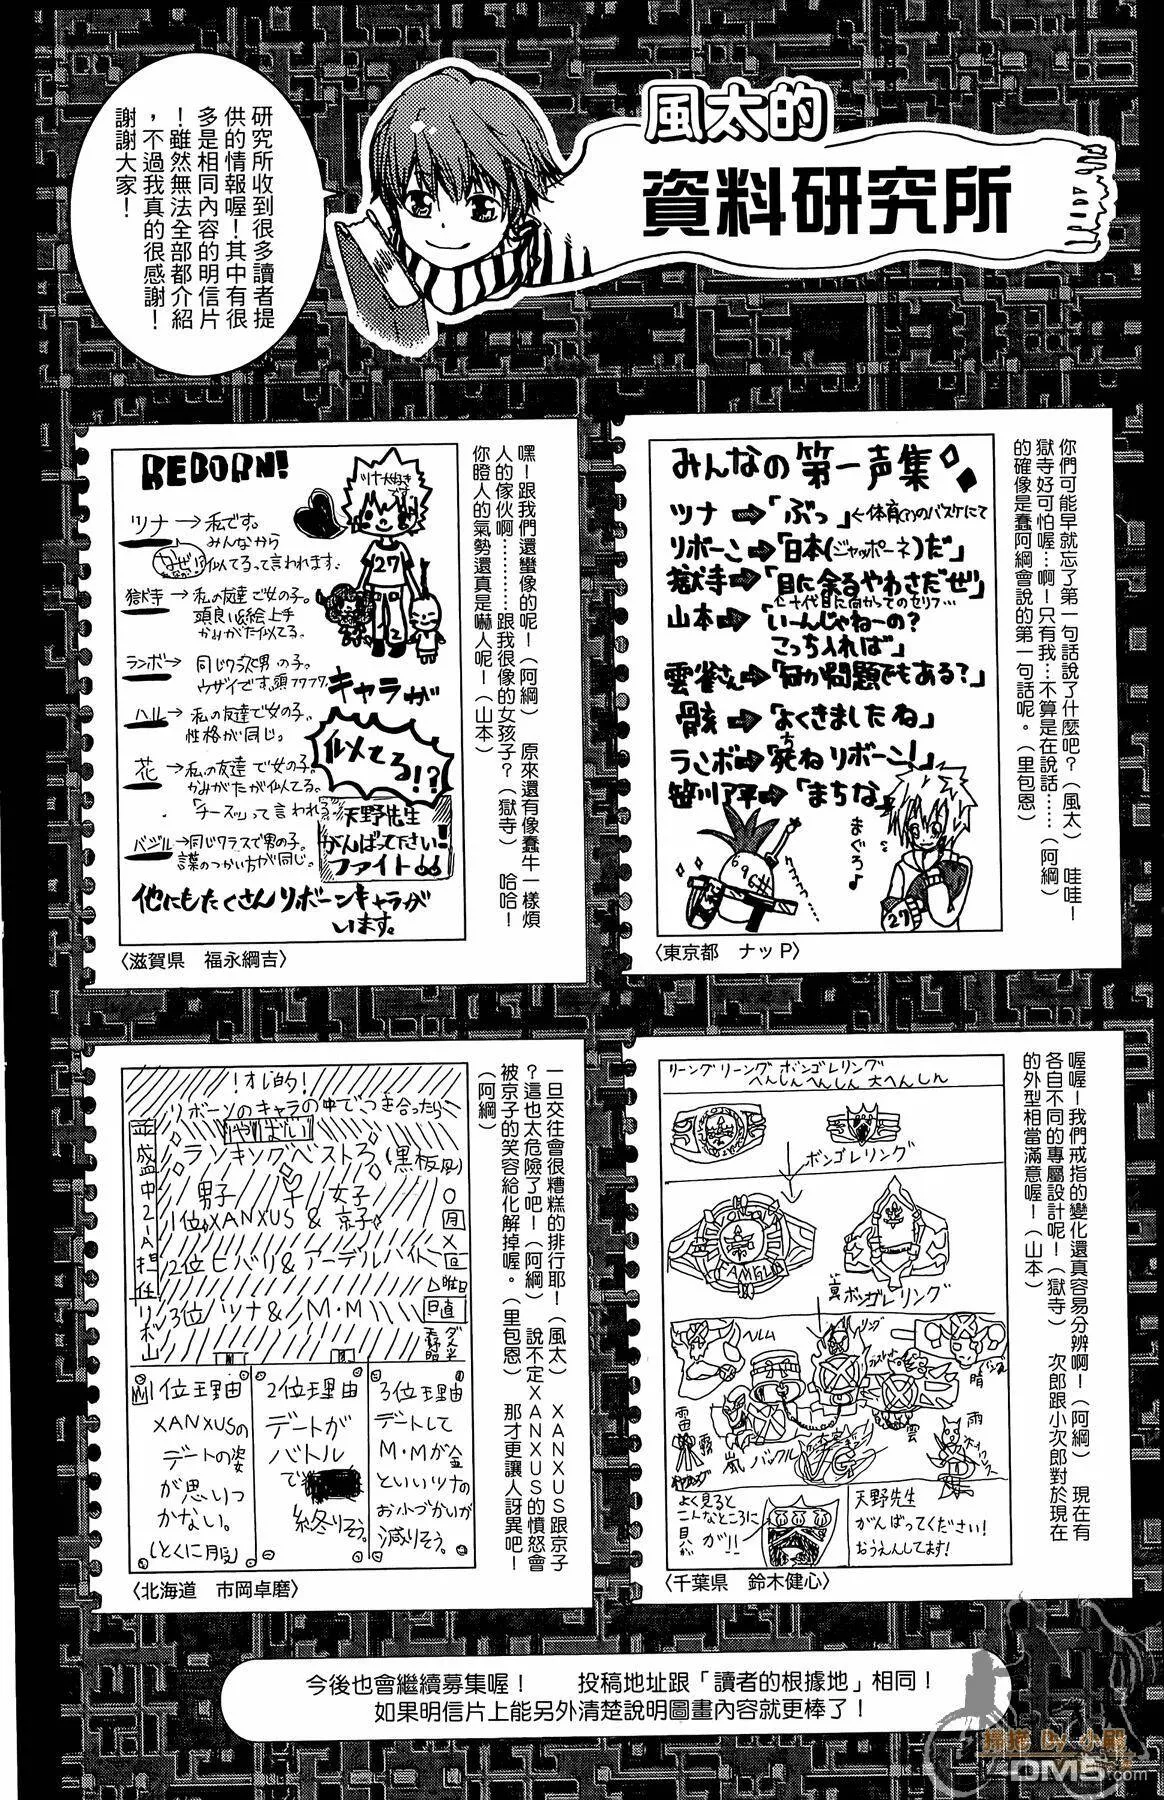 風太的
資料研究所
研究所收到很多讀者提
供的情報喔！其中有很
多是相同內容的明信片
！雖然無法全部都介紹
，不過我真的很感謝！
謝謝大家！
你們可能早就忘了第一句話說了什麼吧？（風太）　哇哇！
獄寺好可怕喔…啊！只有我…不算是在說話……（阿綱）
的確像是蠢阿綱會說的第一句話呢。（里包恩）
みんなの第一声集
ツナ→「ぶっ」←体育(?)のバスケにて
リボーン→「日本(ジャッポーネ)だ」
獄寺→「目に余るやわさだぜ」
└十代目に向かってのセリフ…
山本→「いーんじゃねーの？
こっち入れば」
雲雀さん→「何か問題でもある？」
骸→「よくきましたね」
ランボ→「死ねリボーン！」
笹川了平→「まちな
まぐろ♪
696
27
〈東京都　ナッP〉
嘿！跟我們還蠻像的呢！（阿綱）　原來還有像蠢牛一樣煩
人的傢伙啊…………跟我很像的女孩子？（獄寺）　哈哈！
你瞪人的氣勢還真是嚇人呢！（山本）
REBORN!
ツナ大好きです
27
ツナ→私です。
みんなから
なぜ!? 似てるって言われます。
獄寺→私の友達で女の子。
頭良い&絵上手
かみがた似てる。
ランボー→同じクラスで男の子。
ウザイです。頭フワフワ。
ハル→私の友達で女の子。
性格が同じ。
花→私の友達で女の子。
かみがたが似てる。
「チーズ」って言われる
バジル→同じクラスで男の子。
言葉のつかい方が同じ。
キャラが
似てる!?
天野先生
がんばってください！
ファイト
他にもたくさんリボーンキャラが
います。
〈滋賀県　福永綱吉〉
喔喔！我們戒指的變化還真容易分辨啊！（阿綱）　現在有
各自不同的專屬設計呢！（獄寺）　次郎跟小次郎對於現在
的外型相當滿意喔！（山本）
リーングリーング ボンゴレリング
へんしんへんしん 大へんしん
ボンゴレリング
真ボンゴレリング
ヘルム
リング
晴
雷
霧
嵐
バックル
雲
雨
よく見ると
こんなところに
貝が
が!!
天野先生
がんばってください！
おうえんしてます！
〈千葉県　鈴木健心〉
一旦交往會很糟糕的排行耶！（風太）　XANXUS跟京子
？這也太危險了吧！（阿綱）　說不定XANXUS的憤怒會
被京子的笑容給化解掉喔。（里包恩）　那才更讓人訝異吧！
（阿綱）
！オレ的！
リボーンのキャラの中で、つき合ったら
やばい
ランキングベスト3（黒板風）
男子　女子
1位 XANXUS & 京子
2位 ヒバリ&アーデルハイト
3位 ツナ&M・M
並盛中2-A担任
リボ山
○月×日
△曜日
日直
1位 理由
XANXUSの
デートの姿
が思いつ
かない。
（とくに服）
2位 理由
デートが
バトル
で
終りそう。
3位 理由
デートして
M・Mが金
といいツナの
おこづかいが
減りそう。
〈北海道　市岡卓磨〉
今後也會繼續募集喔！　投稿地址跟「讀者的根據地」相同！
如果明信片上能另外清楚說明圖畫內容就更棒了！
掃描 By 小殿
DM5.com